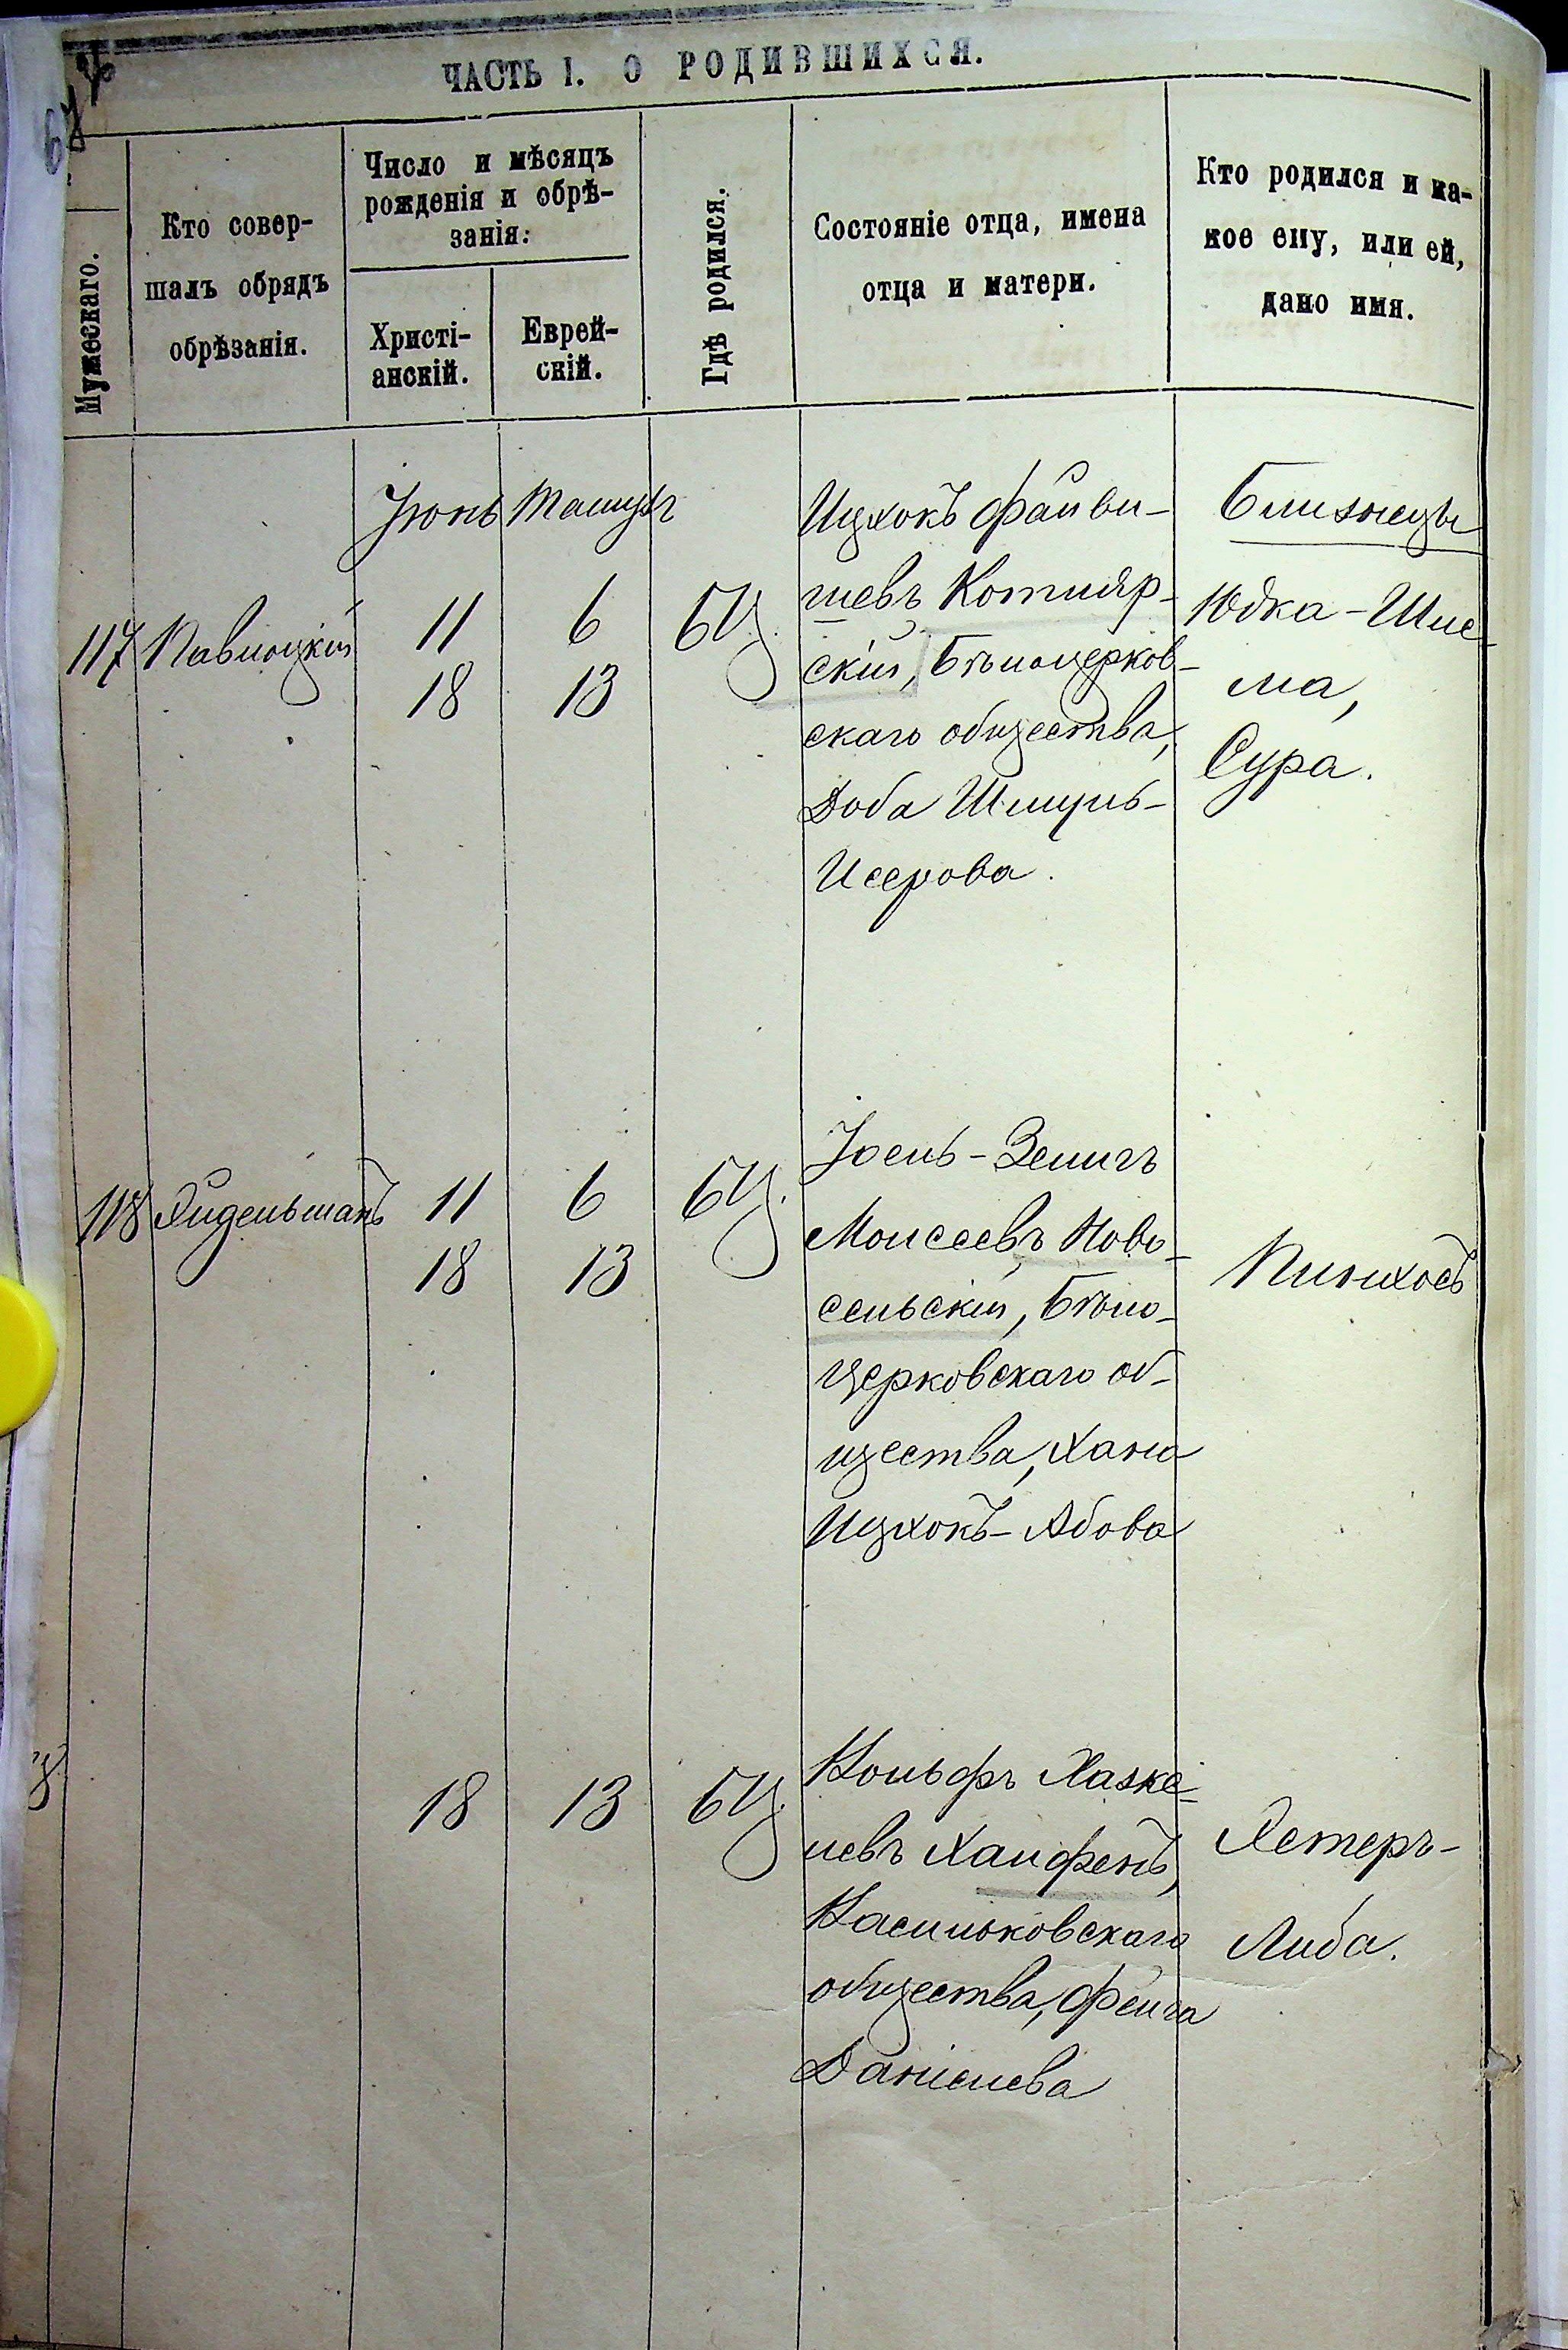 ЧАСТЬ I. О РОДИВШИХСЯ.
Мужескаго.
Кто совер-
шалъ обрядъ
обрѣзанія.
Число и мѣсяцъ
рожденія и обрѣ-
занія:
Христі-
анскій.
Еврей-
скій.
Гдѣ родился.
Состояніе отца, имена
отца и матери.
Кто родился и ка-
кое ему, или ей,
дано имя.
Іюнь Тамузъ
117 Павлоцкій 11 6 БЦ.
18 13
Ицхокъ Файви-
шевъ Котляр-
скій, Бѣлоцерков-
скаго общества,
Доба Шмуль-
Исерова.
Близнецы
Юдка-Шле-
ма,
Сура.
118 Айдельманъ 11 6 БЦ.
18 13
Іосль-Зелигъ
Моисеевъ Ново-
сельскій, Бѣло-
церковскаго об-
щества, Хана
Ицхокъ-Абова
Пинхосъ
18 13 БЦ.
Вольфъ Хазке-
левъ Халфенъ,
Васильковскаго
общества, Фейга
Даніелева
Эстеръ-
Либа.